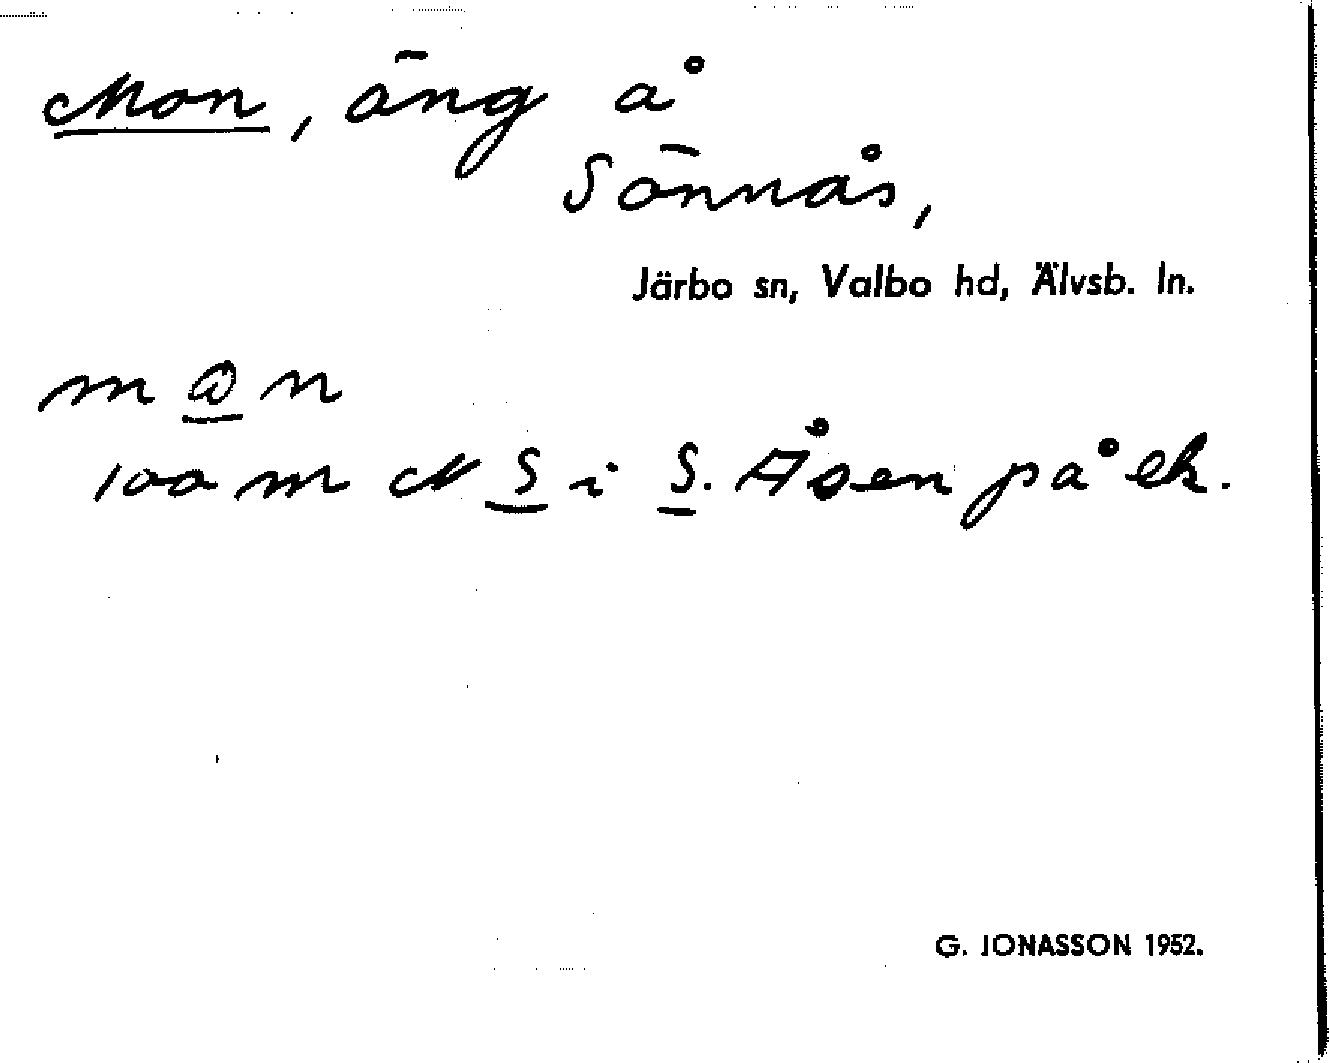 Mon, äng å
Sönnås,
Järbo sn, Valbo hd, Älvsb. ln.
m@n
100 m N S i S. Åsen på ek.
G. JONASSON 1952.